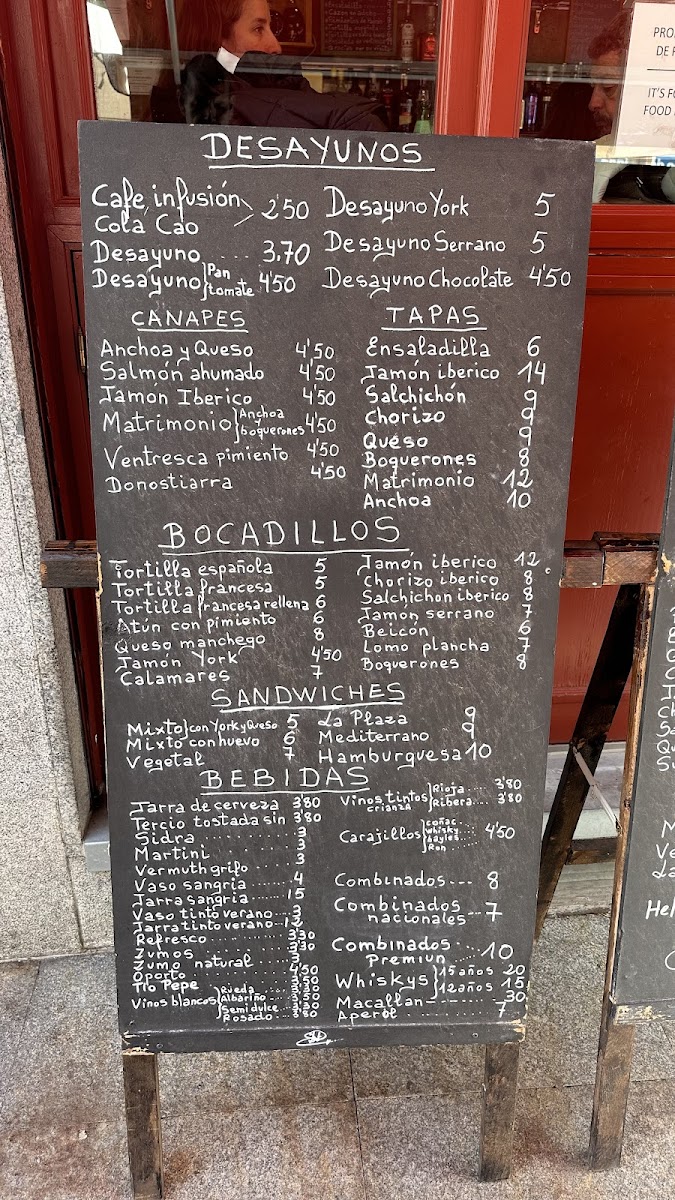 PRO
DE F
IT'S FO
FOOD
DESAYUNOS
Cafe infusión
Cola Cao 2'50
Desayuno .... 3.70
Desayuno Pan tomate 4'50
Desayuno York 5
Desayuno Serrano 5
Desayuno Chocolate 4'50
CANAPES
Anchoa y Queso 4'50
Salmón ahumado 4'50
Jamón Iberico 4'50
Matrimonio Anchoa boquerones 4'50
Ventresca pimiento 4'50
Donostiarra 4'50
TAPAS
Ensaladilla 6
Jamón iberico 14
Salchichón 9
Chorizo 9
Queso 9
Boquerones 8
Matrimonio 12
Anchoa 10
BOCADILLOS
Tortilla española 5
Tortilla francesa 5
Tortilla francesa rellena 6
Atún con pimiento 6
Queso manchego 8
Jamón York 4'50
Calamares 7
Jamón iberico 12
Chorizo iberico 8
Salchichon iberico 8
Jamón serrano 7
Beicón 6
Lomo plancha 7
Boquerones 8
SANDWICHES
Mixto con York y Queso 5
Mixto con huevo 6
Vegetal 7
La Plaza 9
Mediterrano 9
Hamburguesa 10
BEBIDAS
Jarra de cerveza 3'80
Tercio tostada sin 3'80
Sidra 3
Martini 3
Vermuth grifo 3
Vaso sangría 4
Jarra sangría 15
Vaso tinto verano 3
Jarra tinto verano 12
Refresco 3'30
Zumos 3'30
Zumo natural 3
Oporto 4'50
Tio Pepe
Vinos blancos Rueda
Albariño
Semidulce
Rosado
Vinos tintos crianza Rioja 3'80
Ribera 3'80
Carajillos coñac whisky Bayles Ron 4'50
Combinados --- 8
Combinados nacionales - 7
Combinados Premiun 10
Whiskys 15 años 20
12 años 15
Macallan 30
Aperol 7